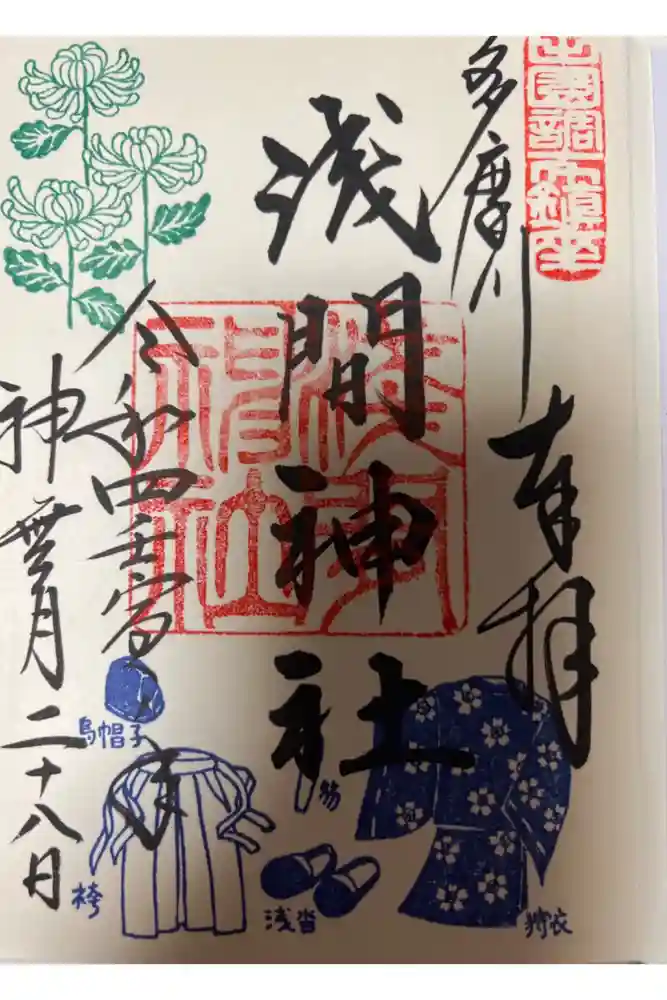 田園調布鎮座
奉拝
多摩川
浅間神社
淺間神社
令和四壬寅年
神無月二十八日
烏帽子
袴
笏
浅沓
狩衣